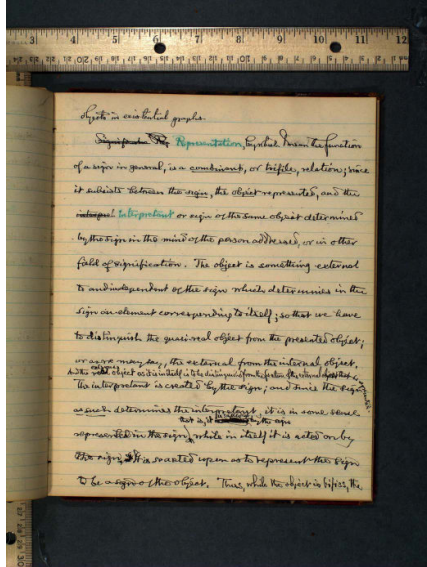 3 4 5 6 7 8 9 10 11 12
objects in existential graphs.
Representation, by which I mean the function
of a sign in general, is a combinant, or trifile, relation; since
it subsists between the sign, the object represented, and the
interpretant or sign of the same object determined
by the sign in the mind of the person addressed, or in other
field of signification. The object is something external
to and independent of the sign which determines in the
sign an element corresponding to itself; so that we have
to distinguish the quasi-real object from the presented object;
or as we may say, the external from the internal object.
object as it is in itself is to be distinguished from the
The interpretant is created by the sign; and since the sign
as such determines the interpretant, it is in some sense
that is, it the sign
represented in the sign, while in itself it is acted on by
the sign. It is so acted upon as to represent the sign
to be a sign of the object. Thus, while the object is the